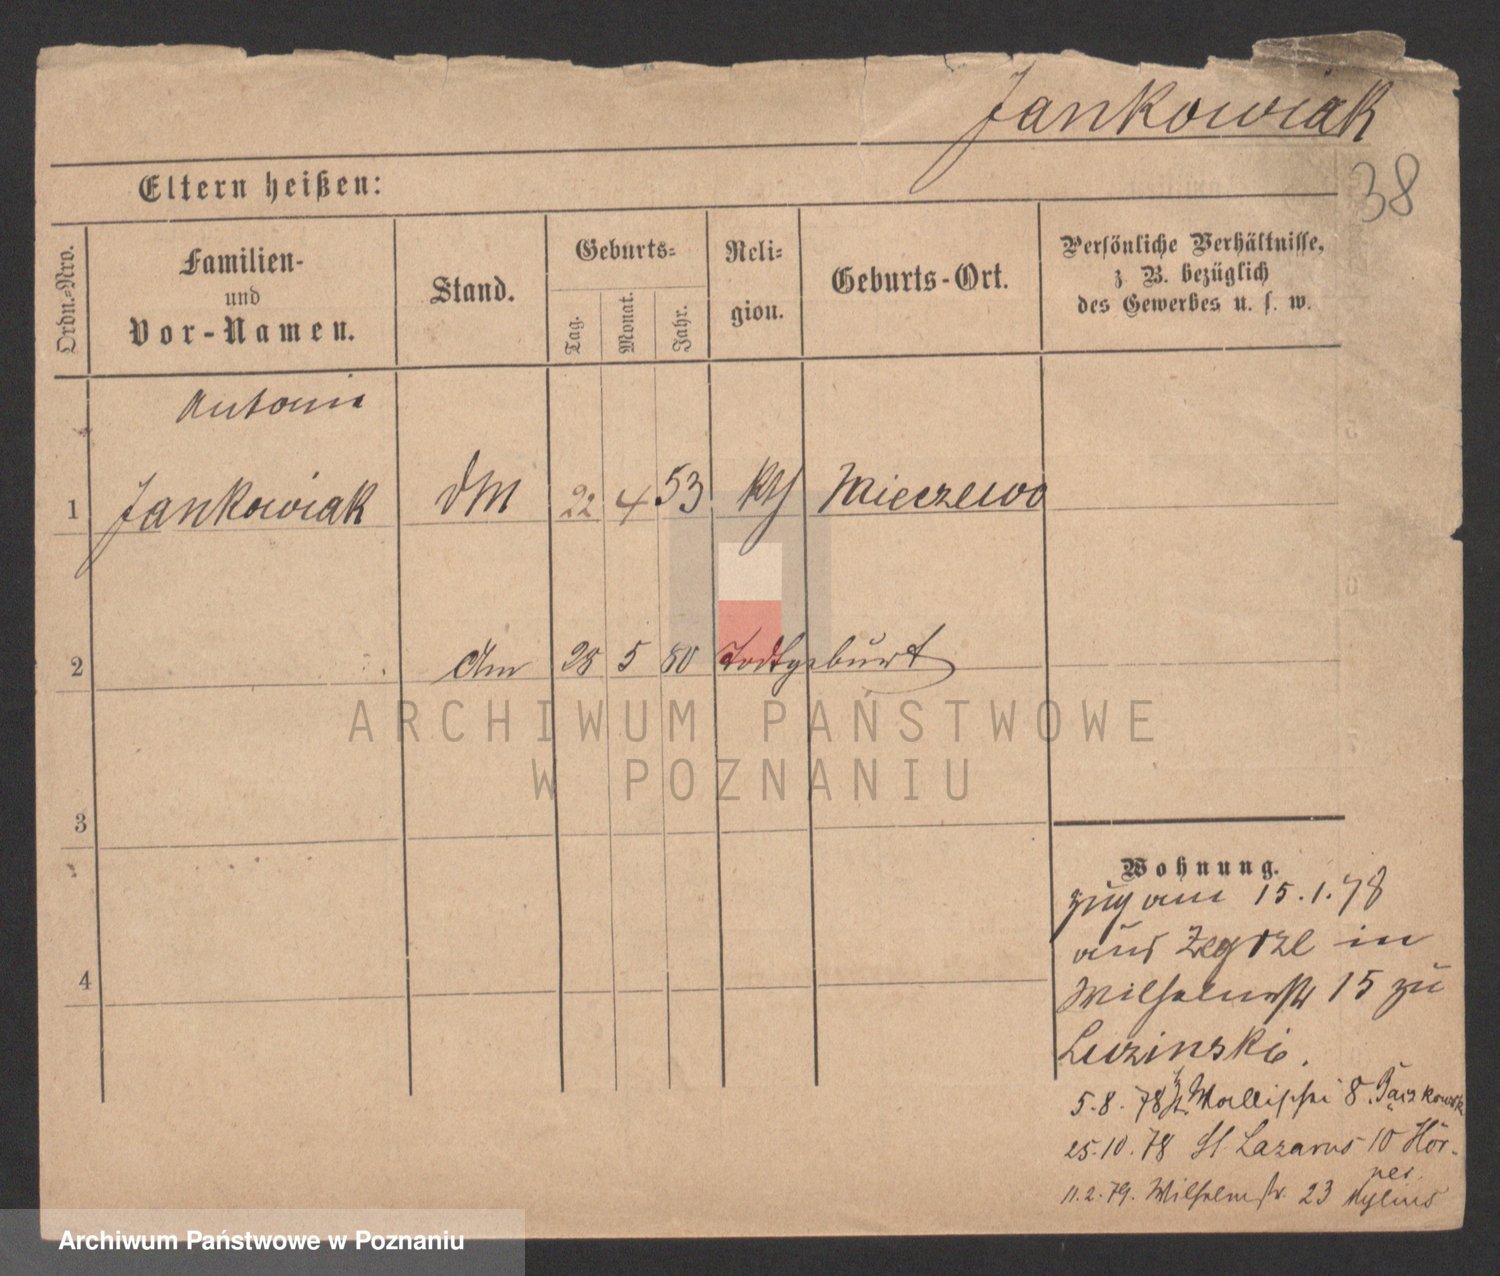 Jankowiak
38
Eltern heißen:
Ordn.-Nro.
Familien-
und
Vor-Namen.
Stand.
Geburts-
Tag.
Monat.
Jahr.
Reli-
gion.
Geburts-Ort.
Persönliche Verhältnisse,
z B. bezüglich
des Gewerbes u. s. w.
Antoni
1 Jankowiak DM 22 4 53 kth Mieczewo
2 Am 28 5 80 Todtgeburt
ARCHIWUM PAŃSTWOWE
W POZNANIU
3
4
Wohnung.
zug am 15.1.78
aus Zegrze in
Wilhelmstr 15 zu
Luzinski.
5.8.78 Wallischei 8
25.10.78 St Lazarus 10 Hör-
ner
11.2.79. Wilhelmstr. 23 Mylius
Archiwum Państwowe w Poznaniu